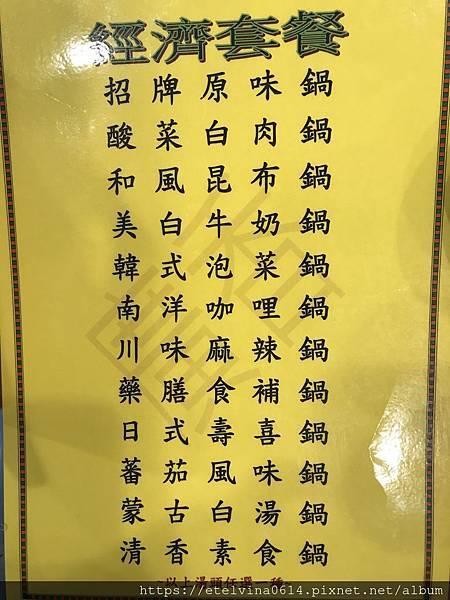 經濟套餐
招牌原味鍋
酸菜白肉鍋
和風昆布鍋
美白牛奶鍋
韓式泡菜鍋
南洋咖哩鍋
川味麻辣鍋
藥膳食補鍋
日式壽喜鍋
蕃茄風味鍋
蒙古白湯鍋
清香素食鍋
~以上湯頭任選一種~
https://etelvina0614.pixnet.net/album